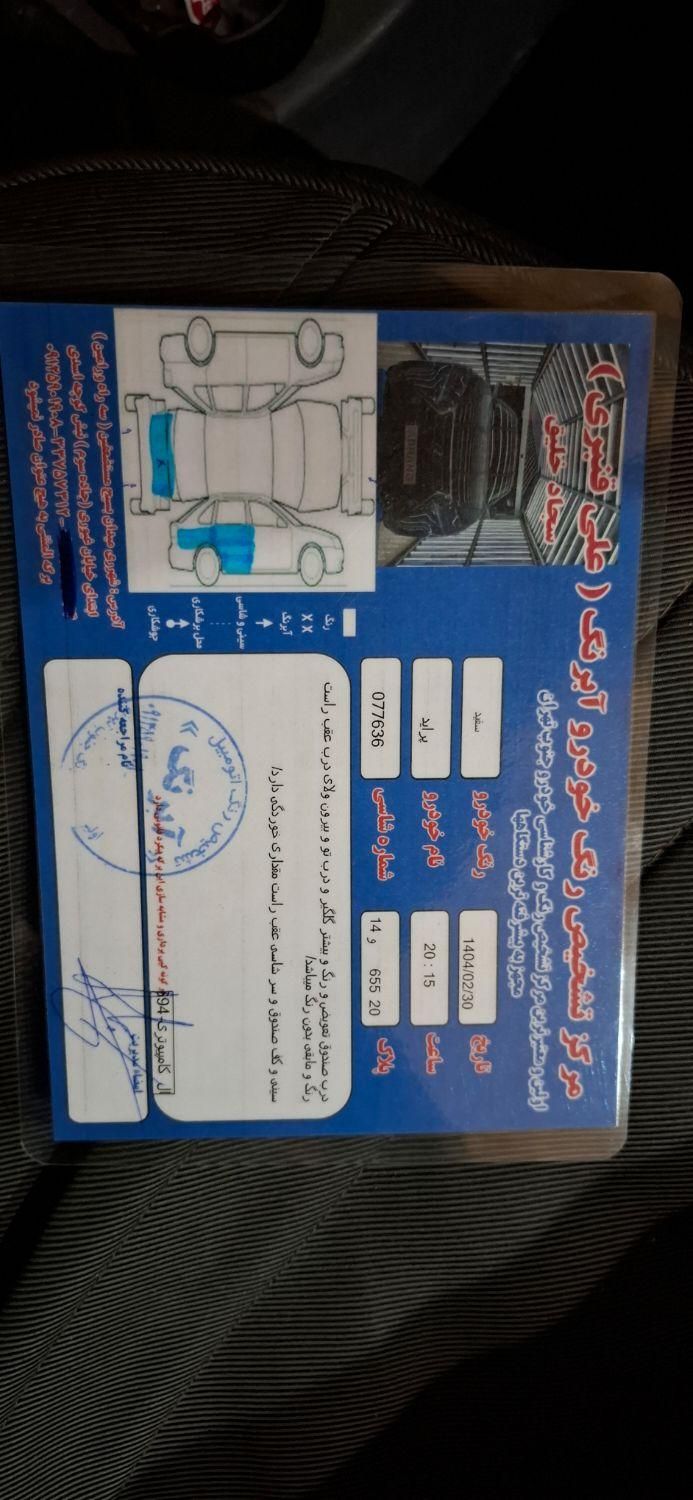 مرکز تشخیص رنگ خودرو آبرنگ ( علی قنبری )
سجاد خلیق
اولین و معتبرترین مرکز تشخیص رنگ و کارشناسی خودرو جنوب تهران
مجهز به پیشرفته ترین دستگاهها
رنگ خودرو
سفید
تاریخ
1404/02/30
نام خودرو
پراید
ساعت
20 : 15
شماره شاسی
077636
پلاک
14 و 655 20
رنگ
X X آبرنگ
سینی و شاسی
محل برشکاری
جوشکاری
درب صندوق تعویض و رنگ و بیشتر گلگیر و درب تو و بیرون ولای درب عقب راست
رنگ و مابقی بدون رنگ میباشد/
سینی و کف صندوق و سر شاسی عقب راست مقداری خوردگی دارد/
تشخیص رنگ اتومبیل
آبرنگ
کامپیوتری
594
نام مراجعه کننده
امضاء مدیریت
آدرس : شهرری میدان بسیج مستضعفین ( سه راه ورامین )
ابتدای خیابان غیوری (جاده سوم) نبش کوچه اسدی